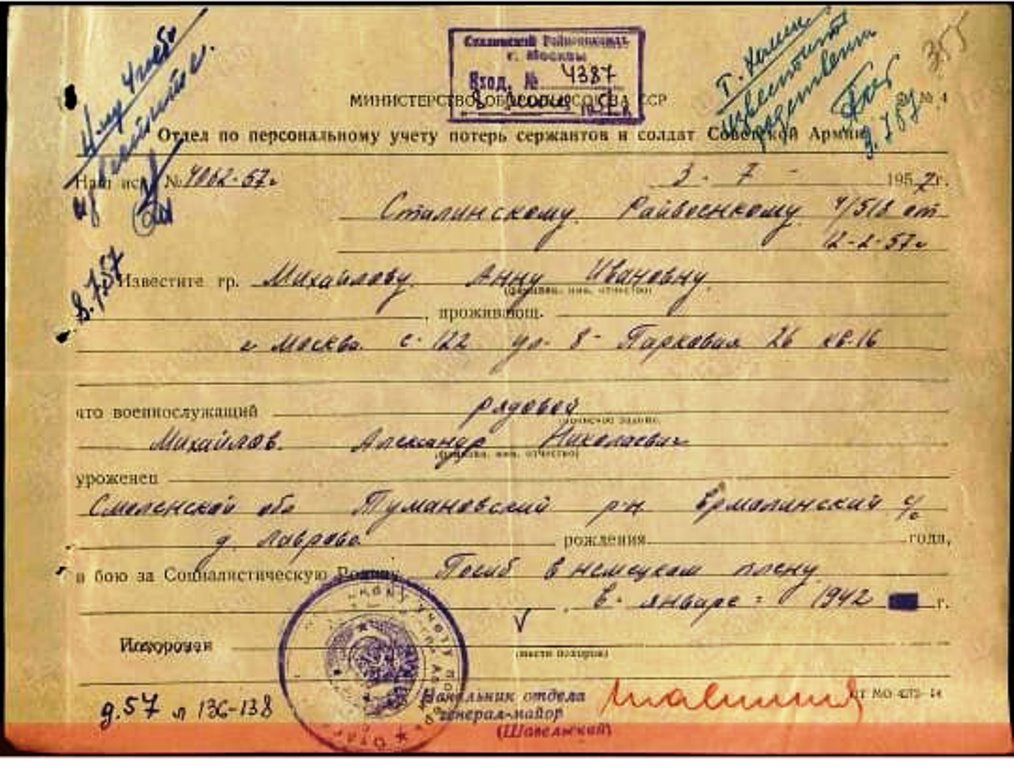 Сталинский Райвоенкомат
г. Москвы
Вход. № 4387
"8" 1957 г.
355
Т.
известить
МИНИСТЕРСТВО ОБОРОНЫ СОЮЗА ССР
№ 4
Отдел по персональному учету потерь сержантов и солдат Советской Армии
9.7.57
Наш исх. № 4062-57г
3 - 7 - 1957г.
Сталинскому Райвоенкому 4/518 от
12-2-57г
8.7.57
Известите гр. Михайлову Анну Ивановну
(фамилия, имя, отчество)
, проживающ.
г Москва с-122 ул- 8- Парковая 26 кв.16
что военнослужащий рядовой
(воинское звание)
Михайлов. Александр Николаевич
(фамилия, имя, отчество)
уроженец
Смоленской обл Тумановский р-н Ермолинский с/с
д. Лаврово рождения года,
в бою за Социалистическую Родину Погиб в немецком плену
в- январе - 1942 г.
Похоронен
(место похорон)
Начальник отдела
генерал-майор
(Шавельский)
д.57 л 136-138